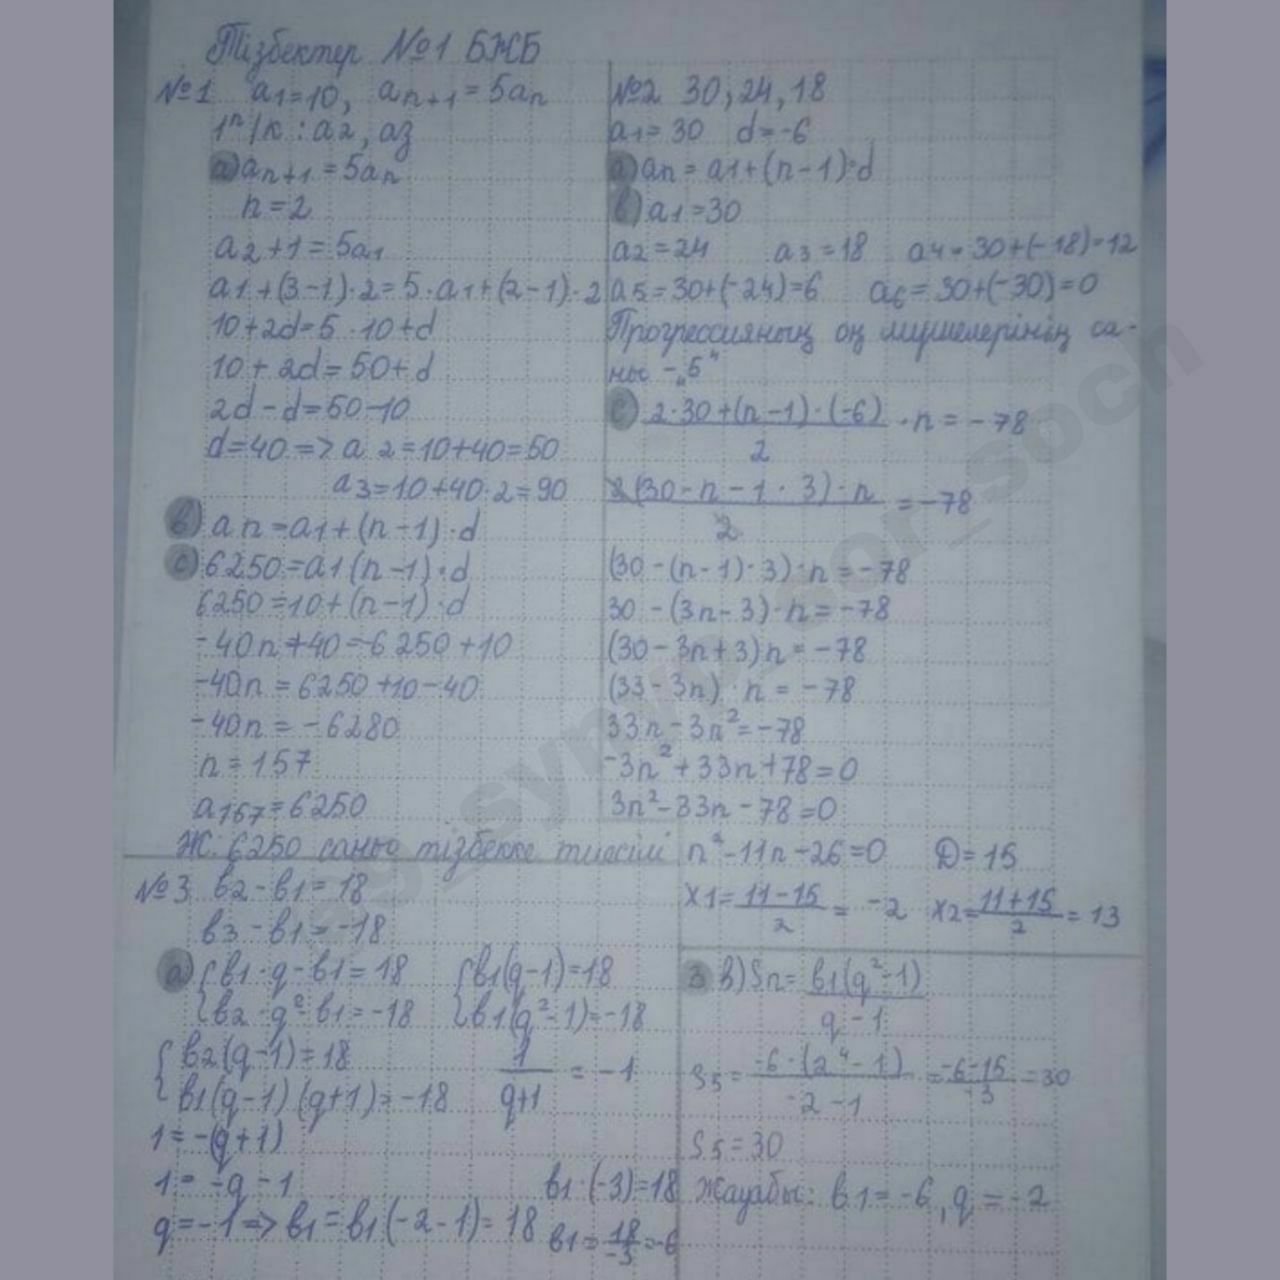 Тізбектер №1 БЖБ
№1 a1=10, an+1=5an
1ⁿ/к: a2, a3
a) an+1=5an
n=2
a2+1=5a1
a1+(3-1)·2=5·a1+(2-1)·2
10+2d=5·10+d
10+2d=50+d
2d-d=50-10
d=40=>a2=10+40=50
a3=10+40·2=90
b) an=a1+(n-1)·d
c) 6250=a1(n-1)·d
6250=10+(n-1)·d
-40n+40=-6250+10
-40n=6250+10-40
-40n=-6280
n=157
a157=6250
Ж: 6250 саны тізбекке тиесілі
№2 30; 24, 18
a1=30 d=-6
a) an=a1+(n-1)·d
b) a1=30
a2=24 a3=18 a4=30+(-18)=12
a5=30+(-24)=6 a6=30+(-30)=0
Прогрессияның оң мүшелерінің са-
ны -„5"
c) 2·30+(n-1)·(-6)/2 ·n=-78
2(30-n-1·3)·n/2=-78
(30-(n-1)·3)·n=-78
30-(3n-3)·n=-78
(30-3n+3)n=-78
(33-3n)·n=-78
33n-3n²=-78
-3n²+33n+78=0
3n²-33n-78=0
n²-11n-26=0 D=15
x1=11-15/2=-2 x2=11+15/2=13
№3 b2-b1=18
b3-b1=-18
a) {b1·q-b1=18 {b1(q-1)=18
{b2·q²-b1=-18 {b1(q²-1)=-18
{b2(q-1)=18 1/q+1=-1
{b1(q-1)(q+1)=-18
1=-(q+1)
1=-q-1
b1·(-3)=18
q=-1=>b1=b1(-2-1)=18 b1=18/-3=-6
3 b) Sn=b1(q²-1)/q-1
S5=-6·(2⁴-1)/-2-1=-6-15/-3=30
S5=30
Жауабы: b1=-6, q=-2